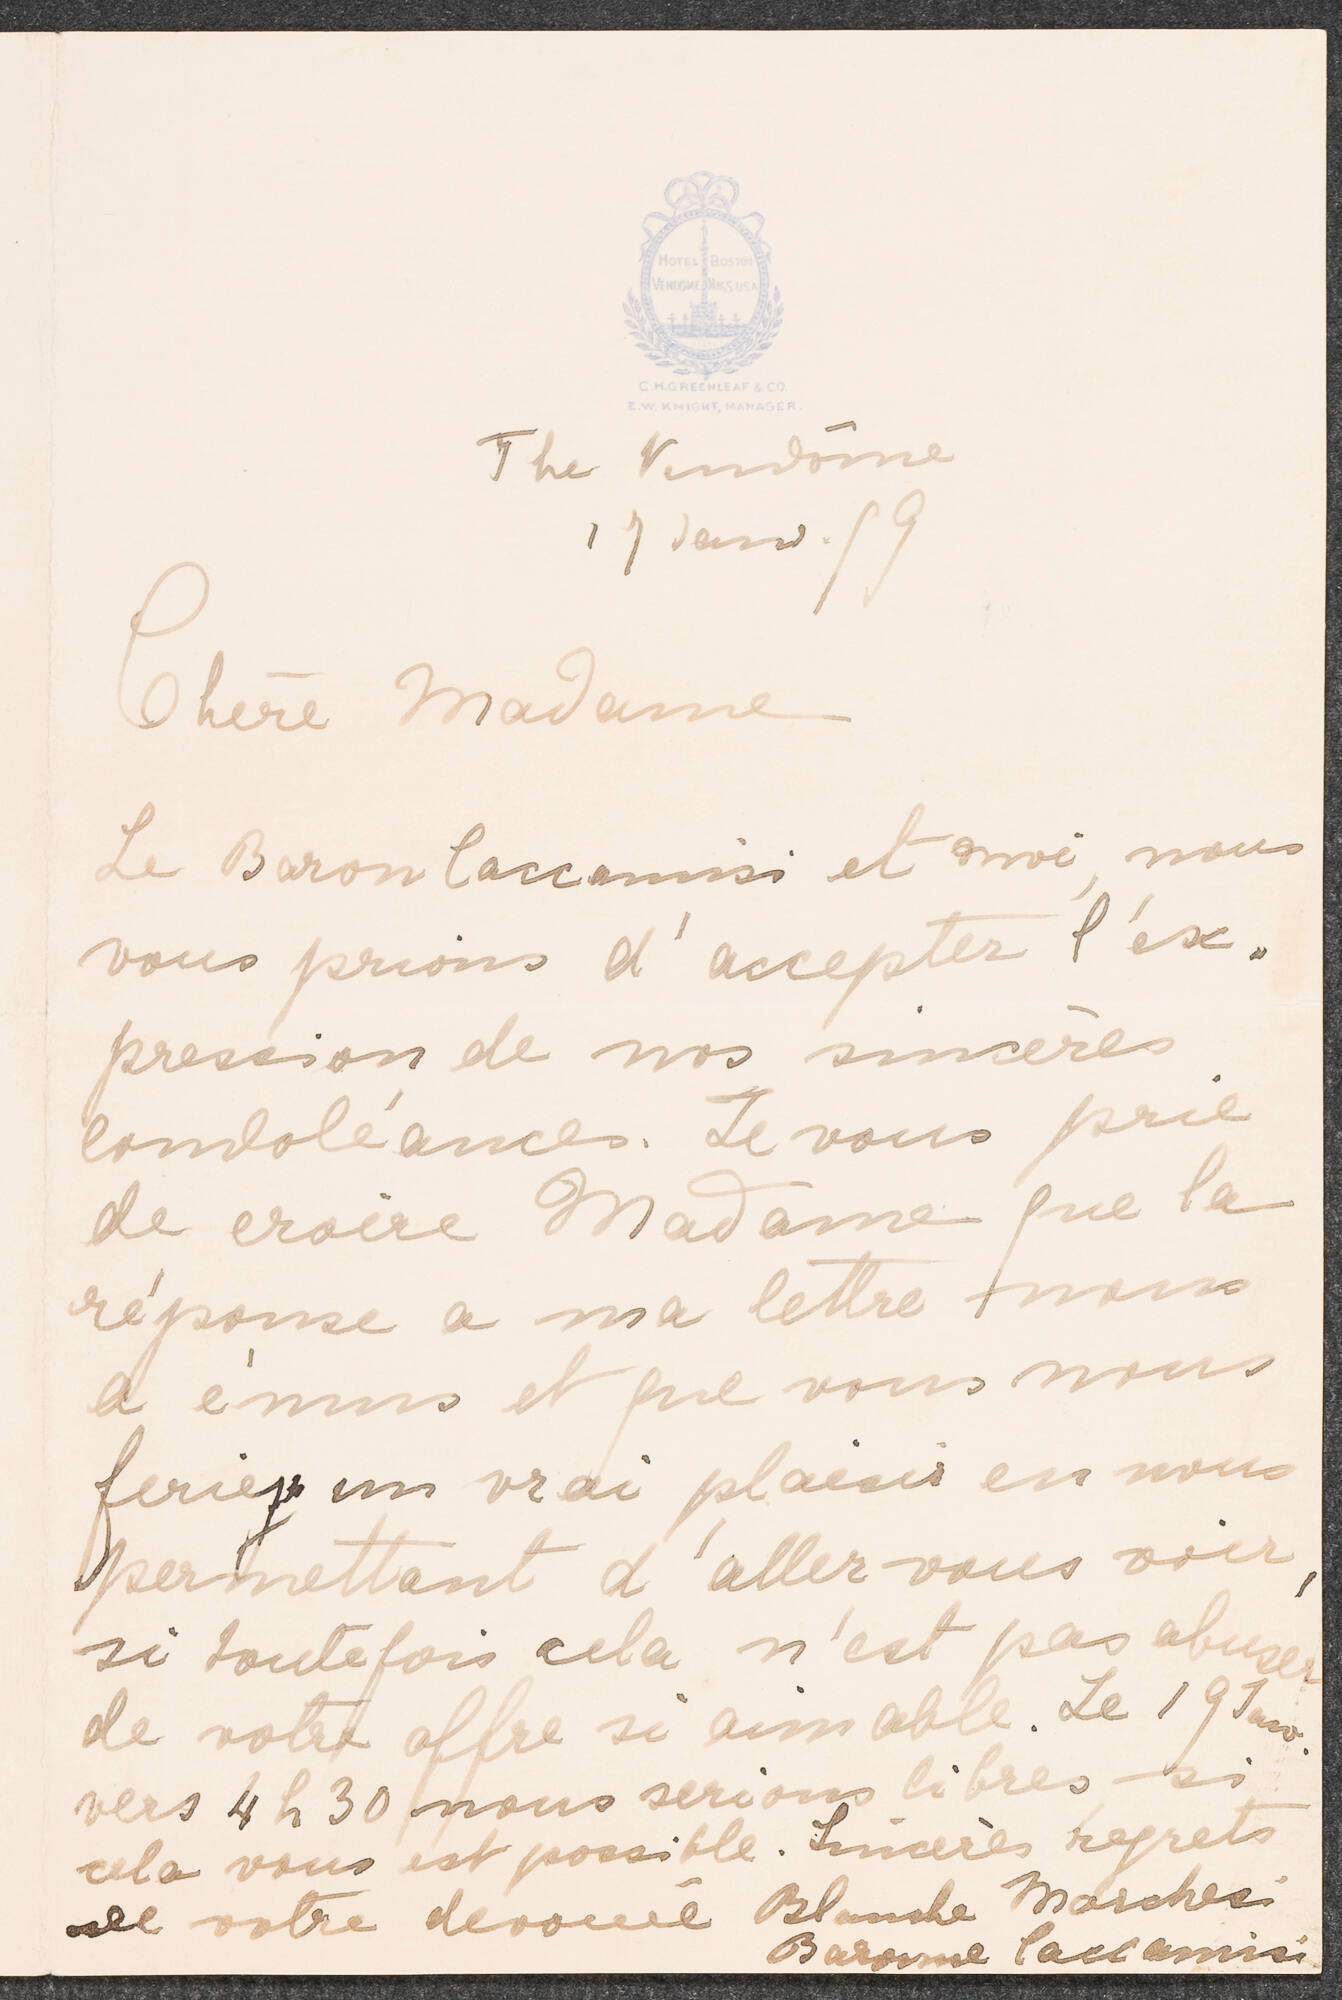 HOTEL BOSTON
VENDOME MASS USA
C.H. GREENLEAF & CO.
E.W. KNIGHT, MANAGER.
The Vendôme
17 Janv. 99
Chère Madame
Le Baron Caccamisi et moi, nous
vous prions d'accepter l'ex-
pression de nos sincères
condoléances. Je vous prie
de croire Madame que la
réponse a ma lettre nous
a émus et que vous nous
feriez un vrai plaisir en nous
permettant d'aller vous voir,
si toutefois cela n'est pas abuser
de votre offre si aimable. Le 19 Janv.
vers 4 h 30 nous serions libres si
cela vous est possible. Sincères regrets
de votre devouée Blanche Marchesi
Baronne Caccamisi